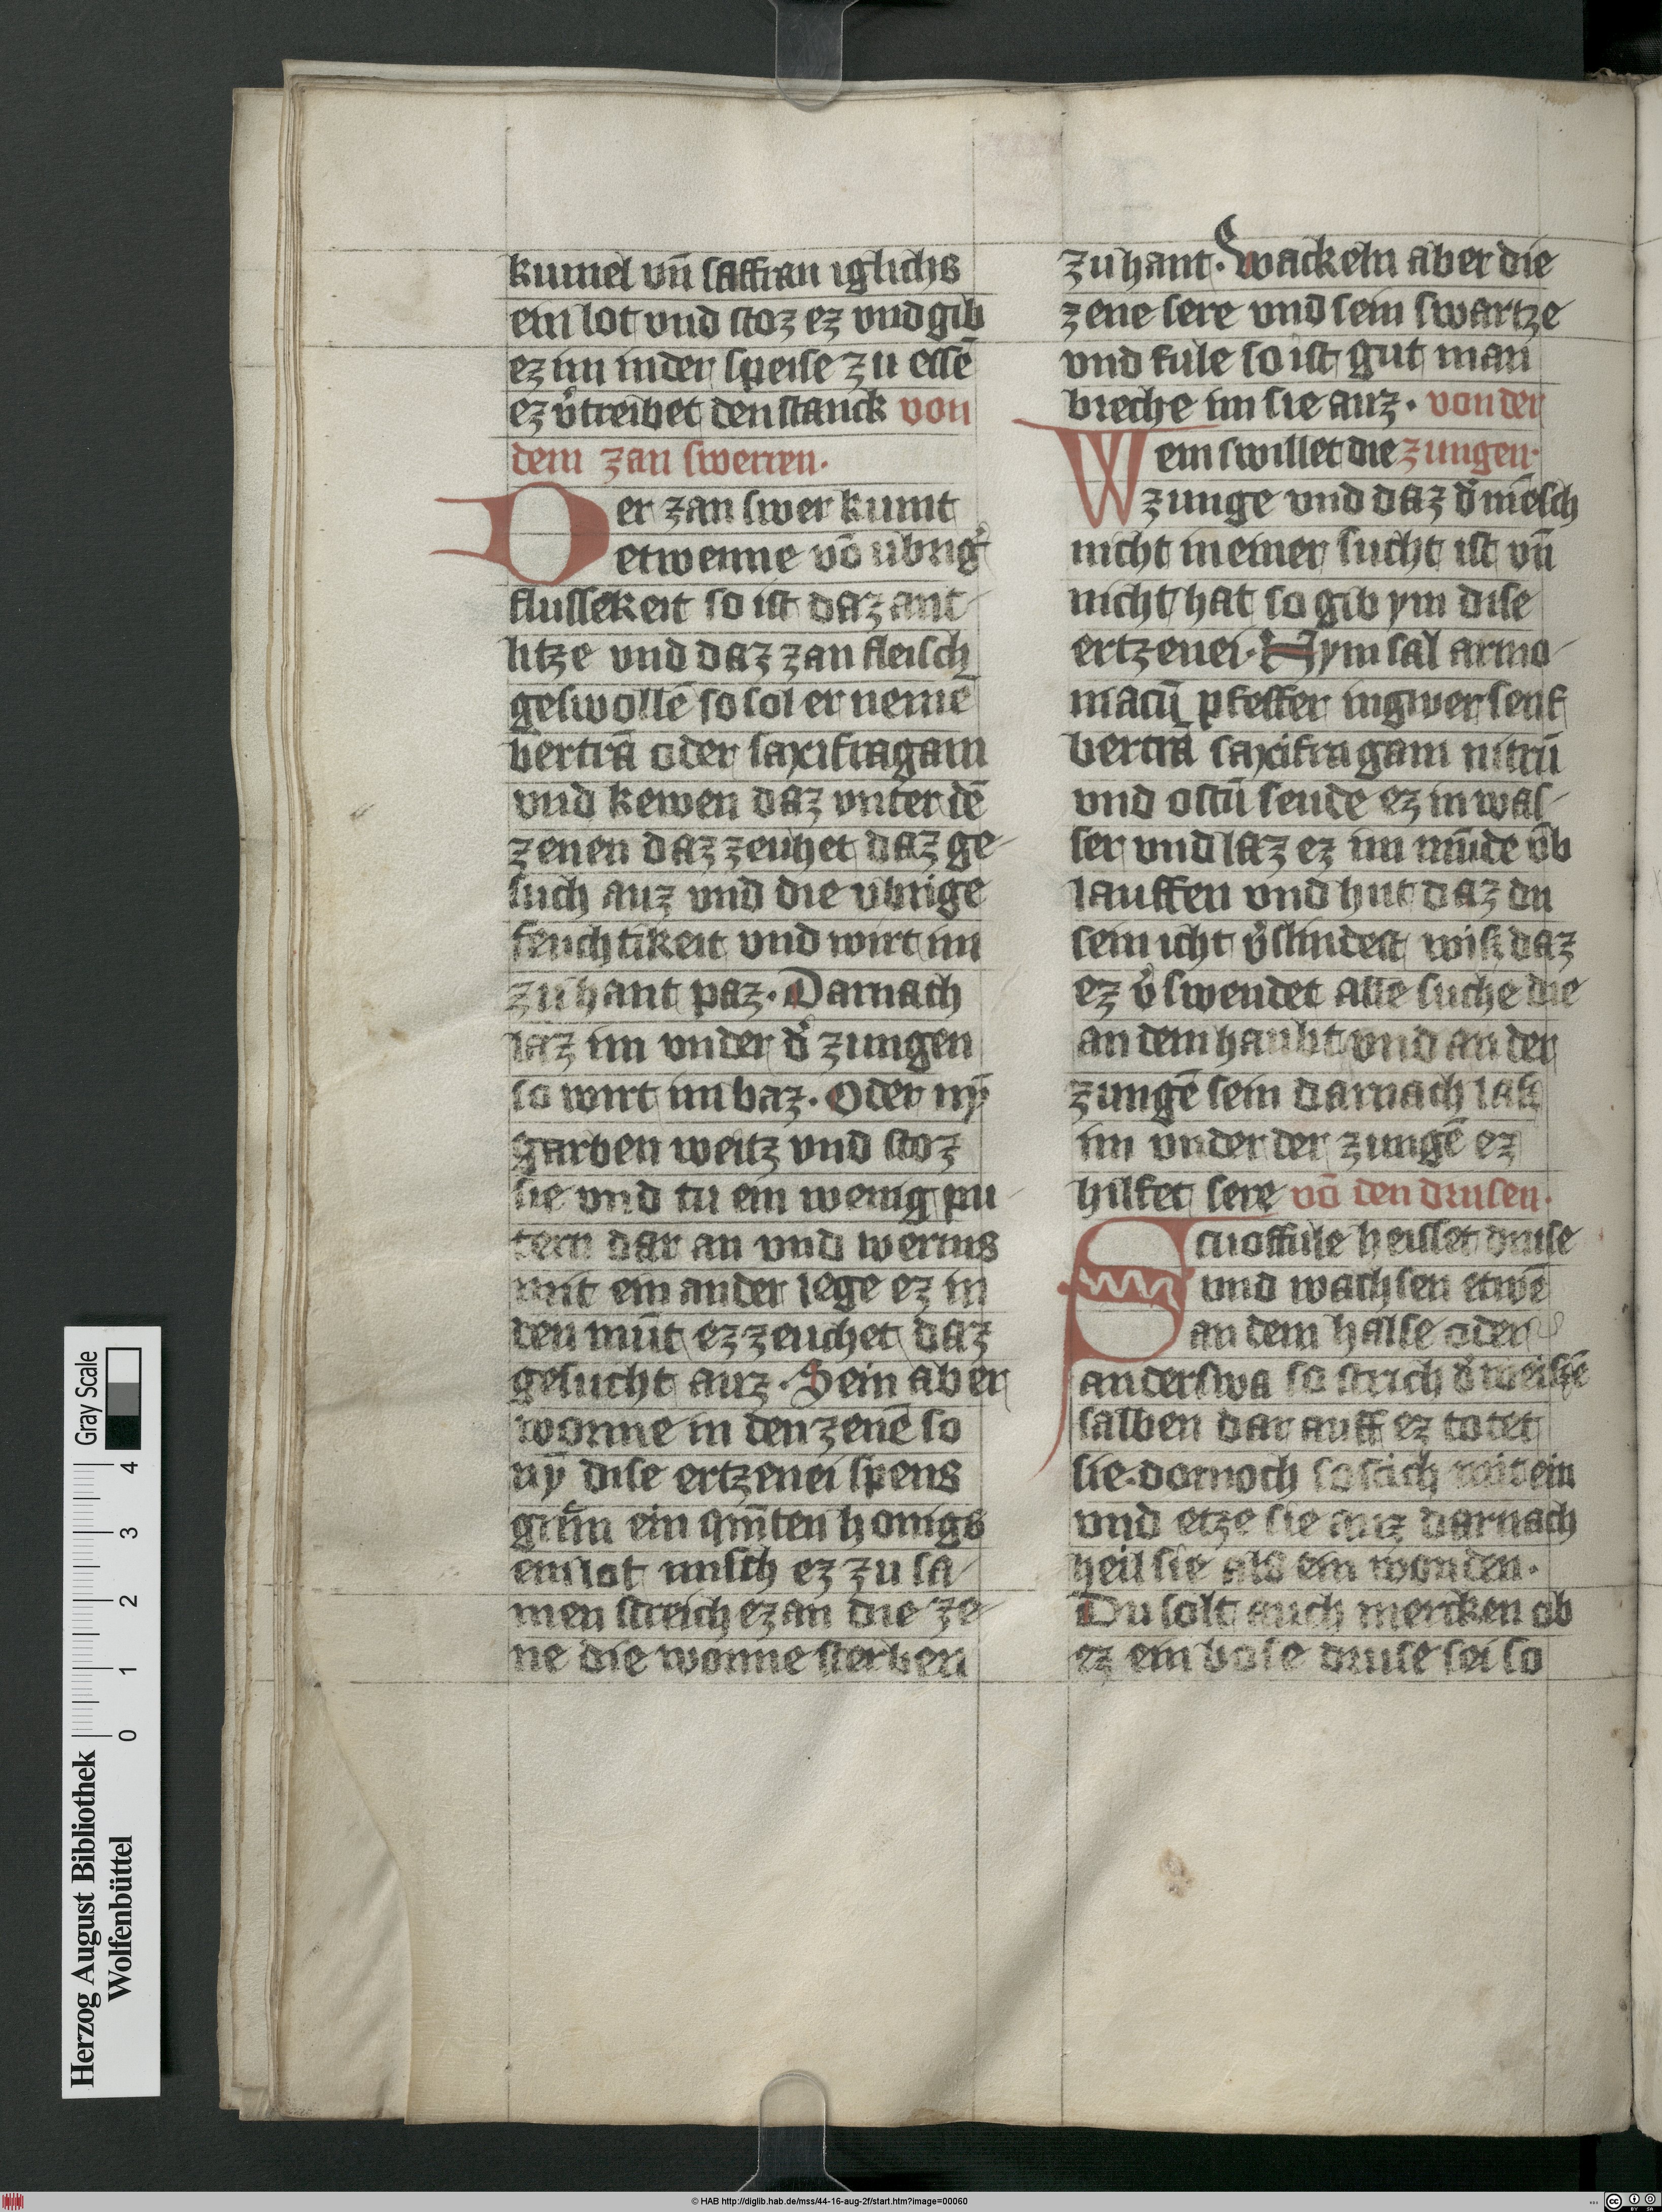 kumel vn̄ saffran iglichs
ein lot vnd stoz ez vnd gib
ez im inder speise zu essē
ez v̓treibet den stanck von
dem zan swerren.
Der zan swer kumt
etwenne vō ubrig̓
flussekeit so ist daz ant
litze vnd daz zan fleisch
geswollē so sol er nemē
bertrā oder saxifragam
vnd kewen daz vnter dē
zenen daz zeuhet daz ge
such auz vnd die vbrige
feuchtikeit vnd wirt im
zu hant paz. Darnach
laz im vnder d̓ zungen
so wirt im baz. Oder nȳ
garben weitz vnd stoz
sie vnd tu ein wenig pu
tern dar an vnd werms
mit ein ander lege ez in
den mūt ez zeuchet daz
gesucht auz. Sein aber
worme in den zenē so
nȳ dise ertzenei spens
grūn ein qīnten honigs
ein lot misch ez zu sa
men streich ez an die ze
ne die worme sterben
zu hant. Wackeln aber die
zene sere vnd sein swartze
vnd fule so ist gut man
breche im sie auz. von der
Wem swillet die zungen.
zunge vnd daz d̓ mēsch
nicht in einer sucht ist vn̄
nicht hat so gib ym dise
ertzenei. Nym sal armo
niacū pfeffer ingwer senf
bertrā saxifragam nitrū
vnd ostū seude ez in was
ser vnd laz ez im mūde v̓b
lauffen vnd hut daz du
sein icht v̓slindest wisz daz
ez v̓swendet alle suche die
an dem haubt vnd an der
zungē sein darnach lasz
im vnder der zungē ez
hilfet sere vō den drusen.
Scroffule heisset druse
vnd wachsen etwē
an dem halse oder
anderswa so strich d̓ weissē
salben dar auff ez totet
sie. dornoch so stich mit ein
vnd etze sie auz darnach
heil sie als ein wunden.
Du solt auch mercken ob
ez ein bose druse sei so
Herzog August Bibliothek
Wolfenbüttel
0 1 2 3 4
Gray Scale
© HAB http://diglib.hab.de/mss/44-16-aug-2f/start.htm?image=00060